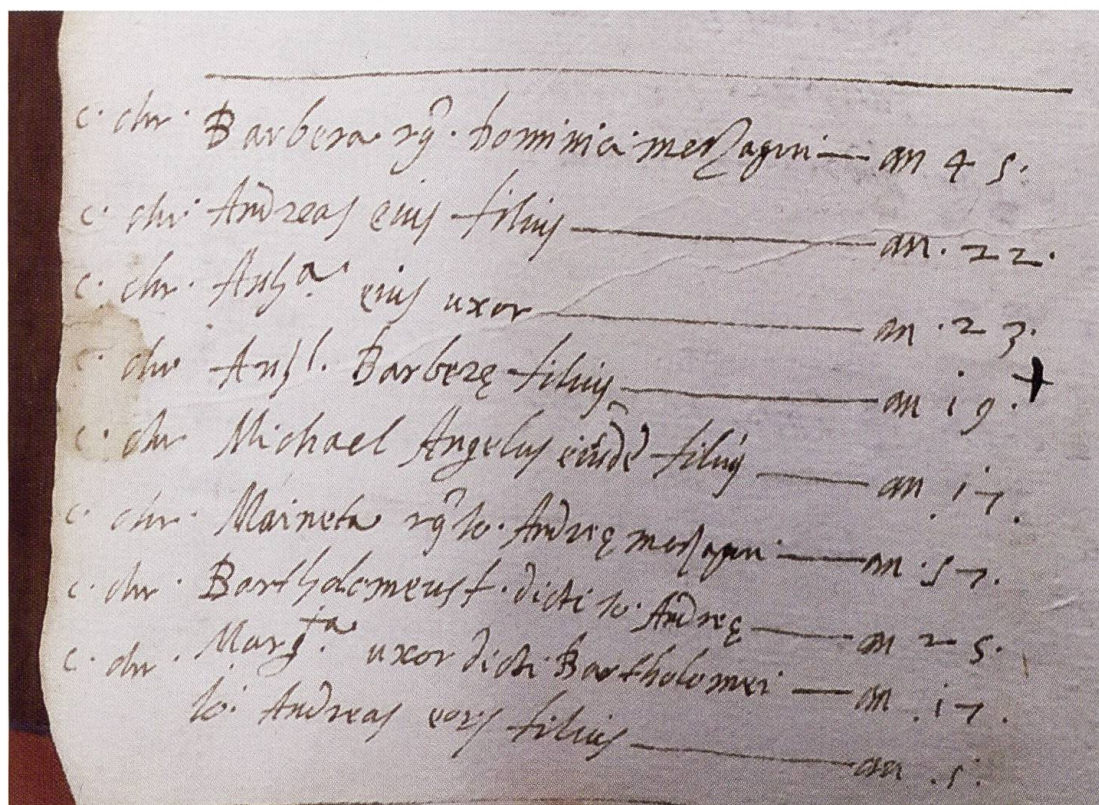 c. chr. Barbera rq. Dominici merzagori — an 45.
c. chr. Andreas eius filius — an. 22.
c. chr. Ant.a eius uxor — an. 23.
c. chr Ant.l. Barberę filius — an 19. +
c. chr Michael Angelus eiusdē filius — an. 17.
c. chr. Maineta rq. Io. Andreę — an. 57.
c. chr. Bartholomeus f. dicti Io. Andreę — an 25.
c. chr. Marg.ta uxor dicti Bartholomei — an. 17.
Io. Andreas eorū filius — an. 5.